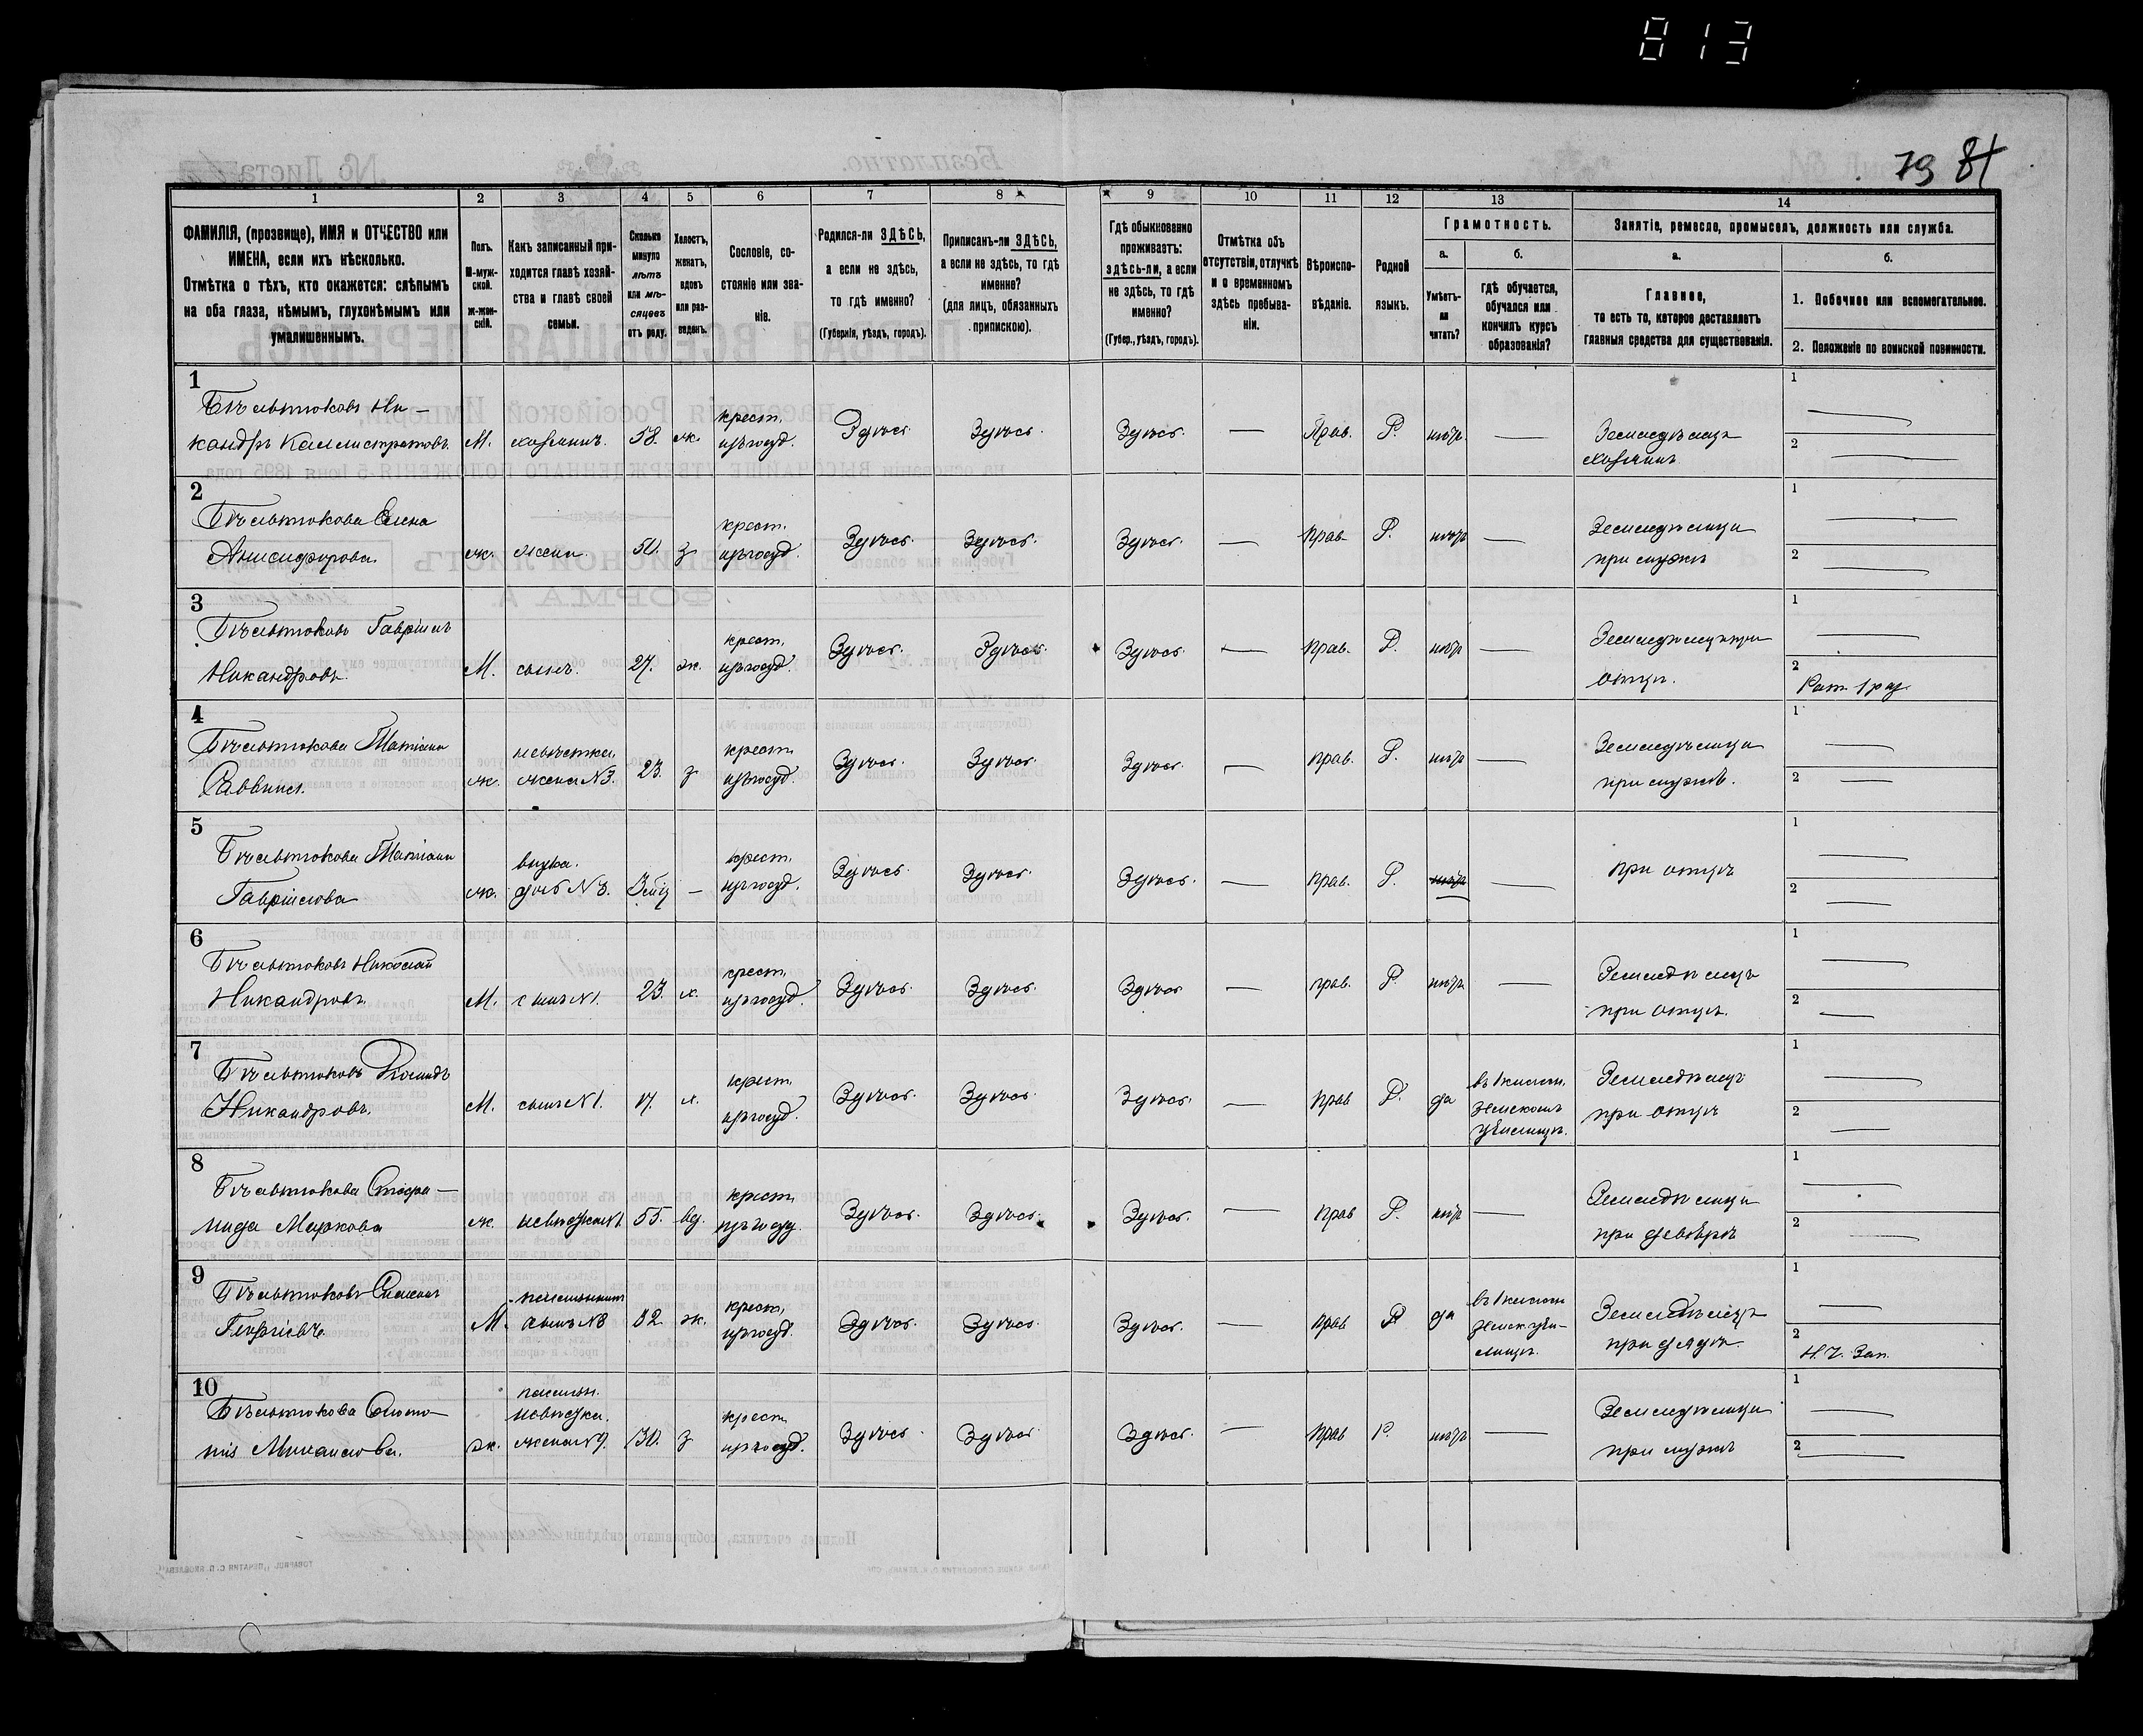 813
79 81
1 2 3 4 5 6 7 8 9 10 11 12 13 14
ФАМИЛІЯ, (прозвище), ИМЯ и ОТЧЕСТВО или
ИМЕНА, если ихъ нѣсколько.
Отмѣтка о тѣхъ, кто окажется: слѣпымъ
на оба глаза, нѣмымъ, глухонѣмымъ или
умалишеннымъ.
Полъ.
М-муж-
ской.
ж-жен-
скій.
Какъ записанный при-
ходится главѣ хозяй-
ства и главѣ своей
семьи.
Сколько
минуло
лѣтъ
или мѣ-
сяцевъ
отъ роду.
Холостъ,
женатъ,
вдовъ
или раз-
веденъ.
Сословіе, со-
стояніе или зва-
ніе.
Родился-ли ЗДѢСЬ,
а если не здѣсь,
то гдѣ именно?
(Губернія, уѣздъ, городъ).
Приписанъ-ли ЗДѢСЬ,
а если не здѣсь, то гдѣ
именно?
(для лицъ, обязанныхъ
припискою).
Гдѣ обыкновенно
проживаетъ:
здѣсь-ли, а если
не здѣсь, то гдѣ
именно?
(Губер., уѣздъ, городъ).
Отмѣтка объ
отсутствіи, отлучкѣ
и о временномъ
здѣсь пребыва-
ніи.
Вѣроиспо-
вѣданіе.
Родной
языкъ.
Грамотность.
а.
Умѣетъ-
ли
читать?
б.
гдѣ обучается,
обучался или
кончилъ курсъ
образованія?
Занятіе, ремесло, промыселъ, должность или служба.
а.
Главное,
то есть то, которое доставляетъ
главныя средства для существованія.
б.
1. Побочное или вспомогательное.
2. Положеніе по воинской повинности.
1
Бѣльтюковъ Ни-
кандръ Каллистратовъ. М. хозяинъ. 58. ж. крест. изъ госуд. Здѣсь. Здѣсь. Здѣсь. — Прав. Р. нѣтъ —
Земледѣлецъ
хозяинъ
1 —
2 —
2
Бѣльтюкова Елена
Анисифорова. ж. жена. 50. з крест. изъ госуд. Здѣсь. Здѣсь. Здѣсь — прав. Р. нѣтъ —
Земледѣлица
при мужѣ
1 —
2 —
3
Бѣльтюковъ Гавріилъ
Никандровъ. М. сынъ. 27. ж. крест. изъ госуд. Здѣсь. Здѣсь. Здѣсь — прав. Р. нѣтъ —
Земледѣлецъ при
отцѣ.
1 —
2 Рат. 1 раз.
4
Бѣльтюкова Татіана
Саввина. ж. невѣстка. жена N3. 23. з крест. изъ госуд. Здѣсь. Здѣсь. Здѣсь — прав. Р. нѣтъ —
Земледѣлица
при мужѣ.
1 —
2 —
5
Бѣльтюкова Татіана
Гавріилова ж. внука. дочь N3. — крест. изъ госуд. Здѣсь. Здѣсь. Здѣсь. — прав. Р. нѣтъ —
при отцѣ
1 —
2 —
6
Бѣльтюковъ Николай
Никандровъ. М. сынъ N1. 23. х. крест. изъ госуд. Здѣсь. Здѣсь. Здѣсь — прав. Р. нѣтъ —
Земледѣлецъ
при отцѣ.
1 —
2 —
7
Бѣльтюковъ
Никандровъ. М. сынъ N1. 17. х. крест. изъ госуд. Здѣсь. Здѣсь. Здѣсь. — прав Р. да
земскомъ
училищѣ.
Земледѣлецъ
при отцѣ
1 —
2 —
8
Бѣльтюкова Стефа-
нида Маркова ж. невѣстка N1. 55. вд. крест. изъ госуд. Здѣсь. Здѣсь. Здѣсь. — прав Р. нѣтъ —
Земледѣлица
при деверѣ
1 —
2 —
9
Бѣльтюковъ
Георгіевъ. М. племянникъ сынъ N8 32. ж. крест. изъ госуд. Здѣсь. Здѣсь. Здѣсь. — прав Р да
земск учи-
лищѣ.
Земледѣлецъ
при дядѣ.
1 —
2 Н. Ч. Зап.
10
Бѣльтюкова
Михаилова. ж. племян. невѣстка. жена N9. 30. з крест. изъ госуд. Здѣсь. Здѣсь. Здѣсь. — прав Р. нѣтъ —
Земледѣлица
при мужѣ
1 —
2 —